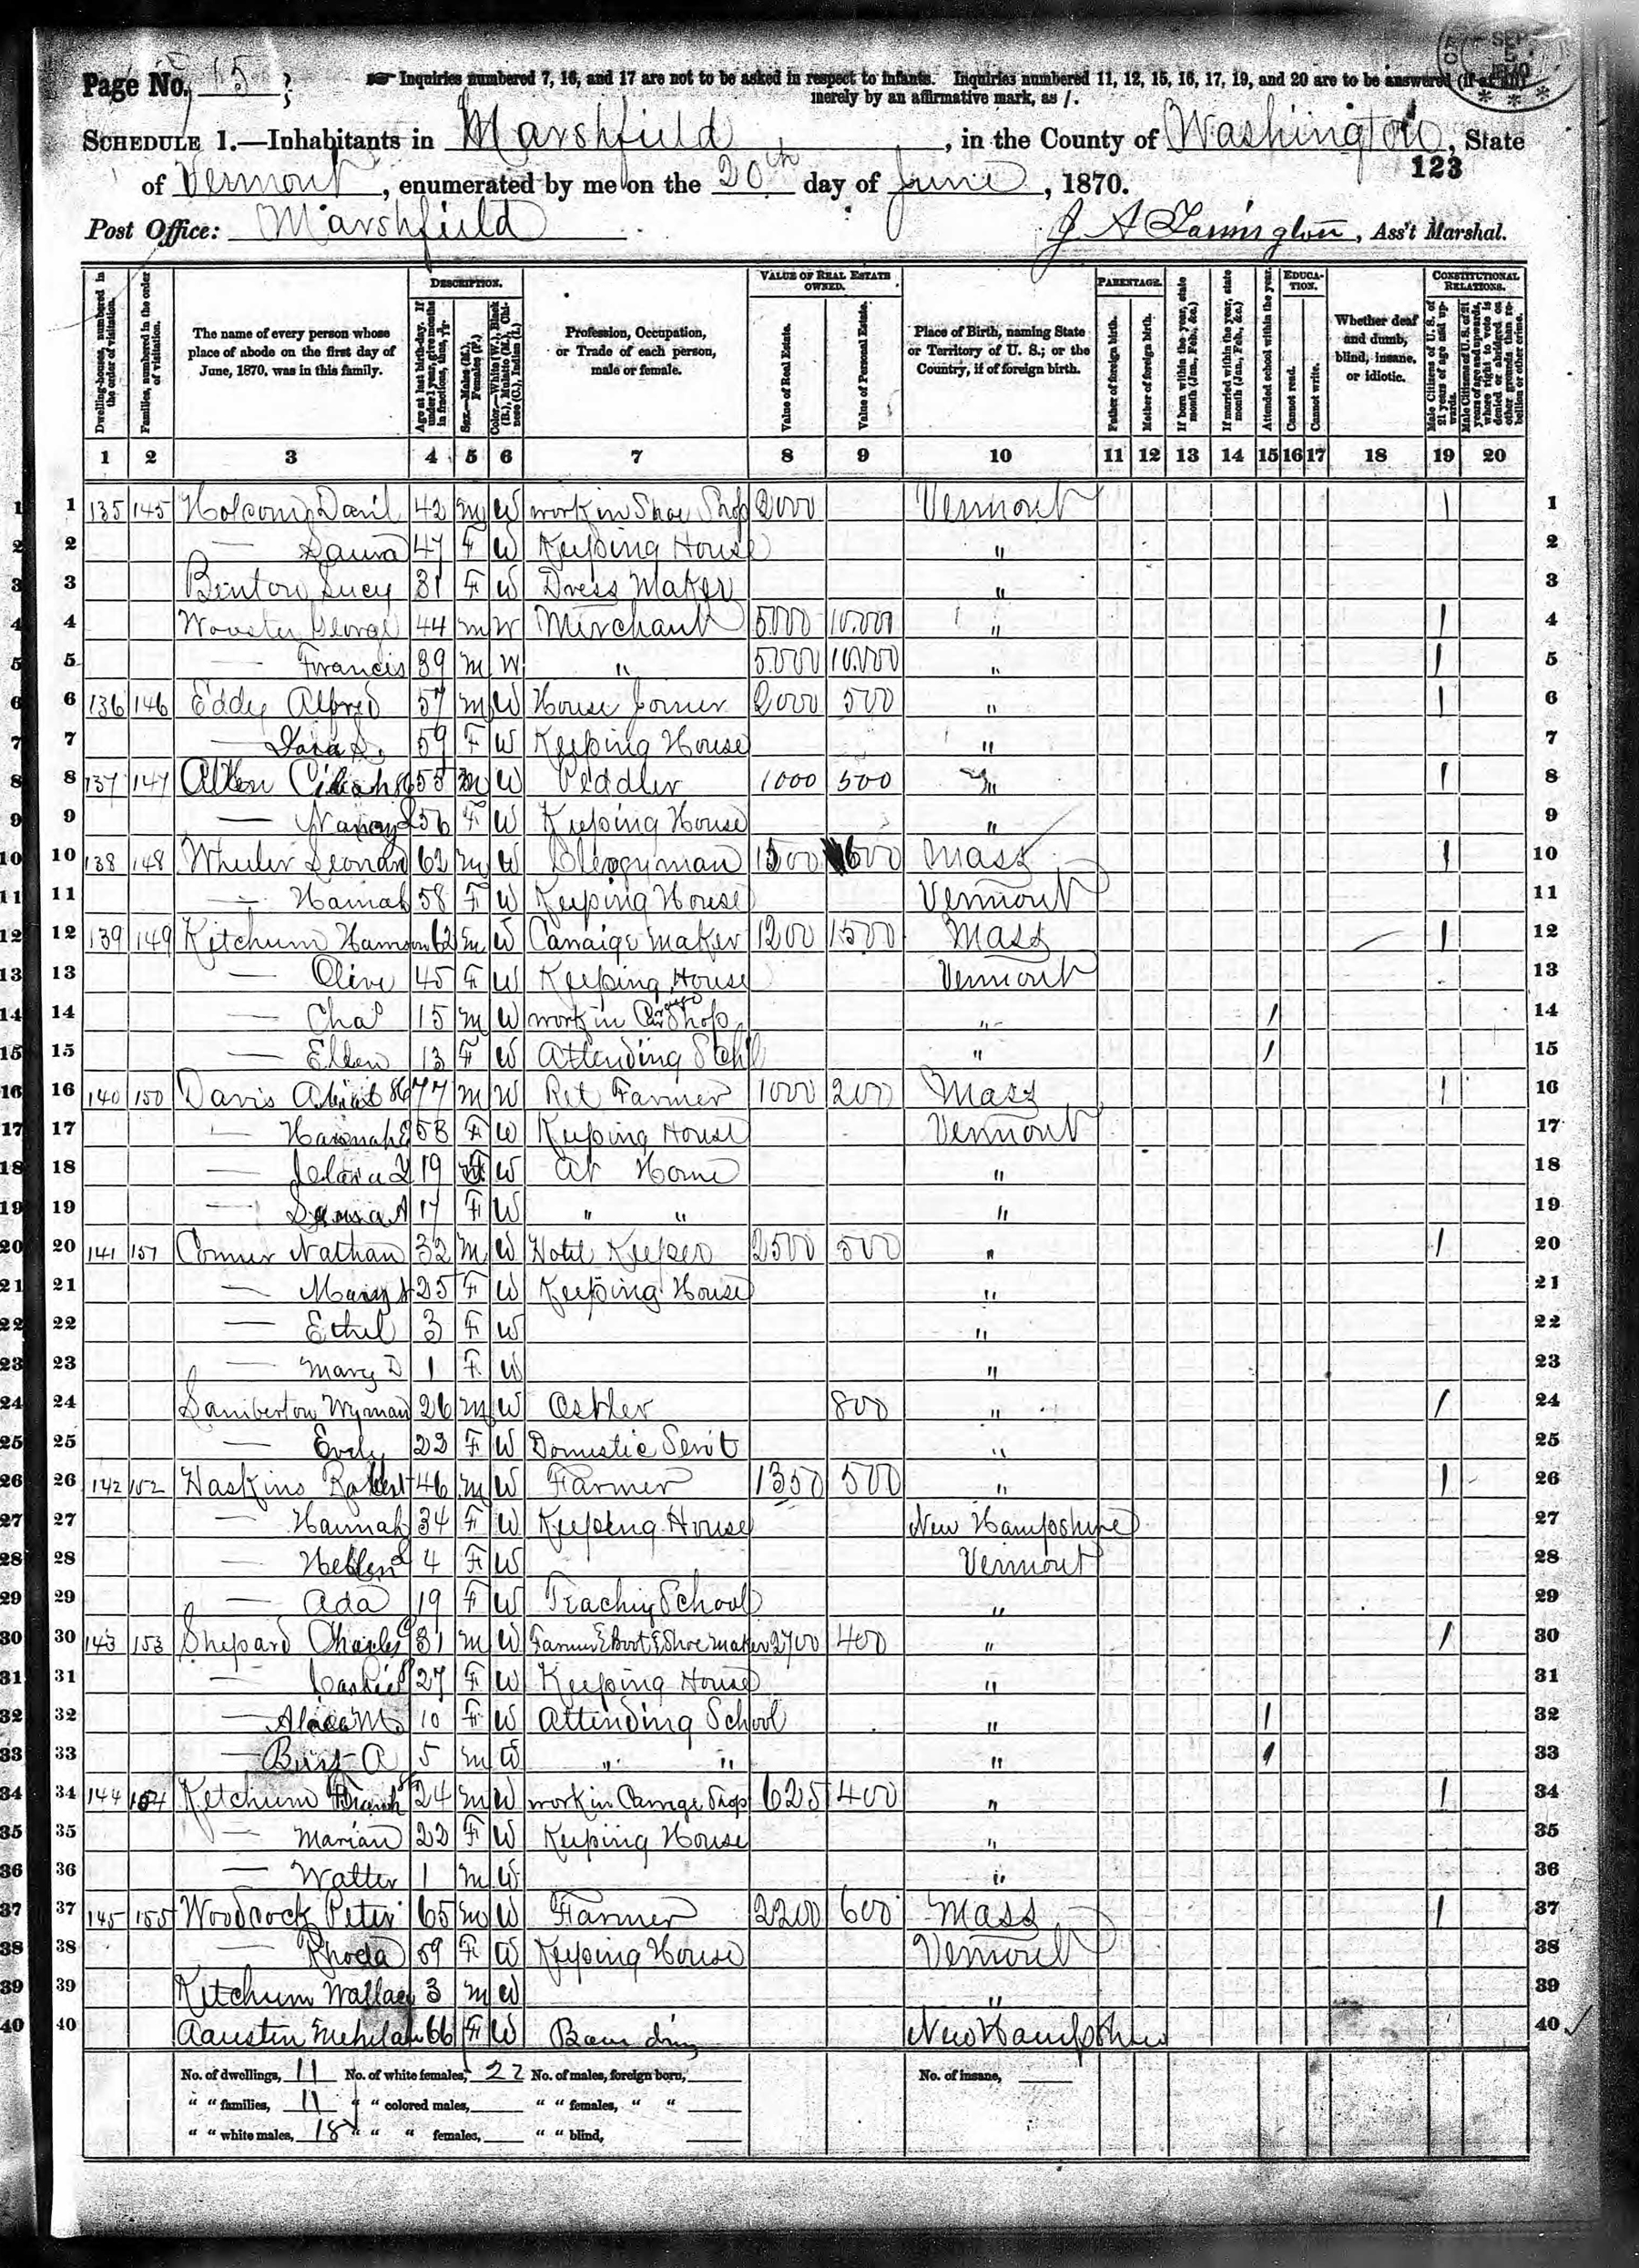 Page No. 15
Inquiries numbered 7, 16, and 17 are not to be asked in respect to infants. Inquiries numbered 11, 12, 15, 16, 17, 19, and 20 are to be answered (if at all)
merely by an affirmative mark, as /.
SCHEDULE 1.—Inhabitants in Marshfield, in the County of Washington, State
123
of Vermont, enumerated by me on the 20th day of June, 1870.
Post Office: Marshfield
J A, Ass't Marshal.
Dwelling-houses, numbered in the order of visitation.
Families, numbered in the order of visitation.
The name of every person whose place of abode on the first day of June, 1870, was in this family.
DESCRIPTION.
Age at last birth-day. If under 1 year, give months in fractions, thus,
Sex.—Males (M.), Females (F.)
Color.—White (W.), Black (B.), Mulatto (M.), Chinese (C.), Indian (I.)
Profession, Occupation, or Trade of each person, male or female.
VALUE OF REAL ESTATE OWNED.
Value of Real Estate.
Value of Personal Estate.
Place of Birth, naming State or Territory of U. S.; or the Country, if of foreign birth.
PARENTAGE.
Father of foreign birth.
Mother of foreign birth.
If born within the year, state month (Jan., Feb., &c.)
If married within the year, state month (Jan., Feb., &c.)
Attended school within the year.
EDUCATION.
Cannot read.
Cannot write.
Whether deaf and dumb, blind, insane, or idiotic.
CONSTITUTIONAL RELATIONS.
Male Citizens of U. S. of 21 years of age and upwards.
Male Citizens of U. S. of 21 years of age and upwards, where right to vote is denied or abridged on other grounds than rebellion or other crime.
1 2 3 4 5 6 7 8 9 10 11 12 13 14 15 16 17 18 19 20
1 135 145 42 M W work in Shoe Shop 2000 Vermont / 1
2 — Laura 47 F W Keeping House " 2
3 Benton Lucy 31 F W Dress Maker " 3
4 Wooster George 44 M W Merchant 5000 10.000 " / 4
5 — Francis 39 M W " 5000 10.000 " / 5
6 136 146 Eddy Alfred 57 M W House Joiner 2000 500 " / 6
7 — 59 F W Keeping House " 7
8 137 147 55 M W Peddler 1000 500 " / 8
9 — Nancy 56 F W Keeping House " 9
10 138 148 Wheeler Leonard 62 M W Clergyman 1500 600 Mass / 10
11 — Hannah 58 F W Keeping House Vermont 11
12 139 149 Ketchum 62 M W Carraige Maker 1200 1500 Mass / 12
13 — Olive 45 F W Keeping House Vermont 13
14 — Chas 15 M W work in Shop " / 14
15 — Ellen 13 F W Attending Schl " / 15
16 140 150 Davis 77 M W Ret Farmer 1000 200 Mass / 16
17 — Hannah 58 F W Keeping House Vermont 17
18 — 19 F W At Home " 18
19 — 17 F W " " " 19
20 141 151 Comer Nathan 32 M W Hotel Keeper 2500 500 " / 20
21 — Mary 25 F W Keeping House " 21
22 — Ethel 3 F W " 22
23 — Mary D 1 F W " 23
24 Lamberton Wyman 26 M W Ostler 800 " / 24
25 — 22 F W Domestic Servt " 25
26 142 152 Haskins Robert 46 M W Farmer 1350 500 " / 26
27 — Hannah 34 F W Keeping House New Hampshire 27
28 — Hellen 4 F W Vermont 28
29 — Ada 19 F W Teaching School " 29
30 143 153 Shepard Charles 31 M W Farmer & Boot & Shoe Maker 2700 400 " / 30
31 — 27 F W Keeping House " 31
32 — M 10 F W Attending School " / 32
33 — Burt A 5 M W " " " / 33
34 144 154 Ketchum Frank 24 M W work in Carrige Shop 625 400 " / 34
35 — Marian 22 F W Keeping House " 35
36 — Walter 1 M W " 36
37 145 155 Woodcock Peter 65 M W Farmer 2200 600 Mass / 37
38 — Rhoda 59 F W Keeping House Vermont 38
39 Ketchum Wallace 3 M W " 39
40 66 F W Boarding New Hampshire 40
No. of dwellings, 11 No. of white females, 22 No. of males, foreign born, No. of insane,
" " families, 11 " " colored males, " " females, " "
" " white males, 18 " " " females, " " blind,